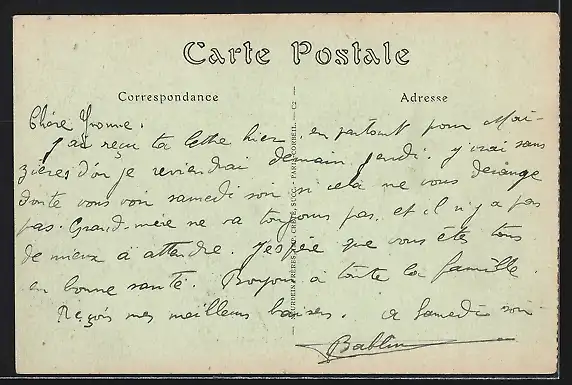 Carte Postale
Correspondance
Adresse
Chère Yvonne.
J'ai reçu ta lettre hier, en partant pour Mai-
zières d'où je reviendrai demain jeudi. J'irai sans
doute vous voir samedi soir si cela ne vous dérange
pas. Grand-mère ne va toujours pas, et il n'y a pas
de mieux à attendre. J'espère que vous êtes tous
en bonne santé. Bonjour à toute la famille.
Reçois mes meilleurs baisers. à Samedi soir
BOURDEIN FRÈRES SUCC. - PARIS-CORBEIL. - C2